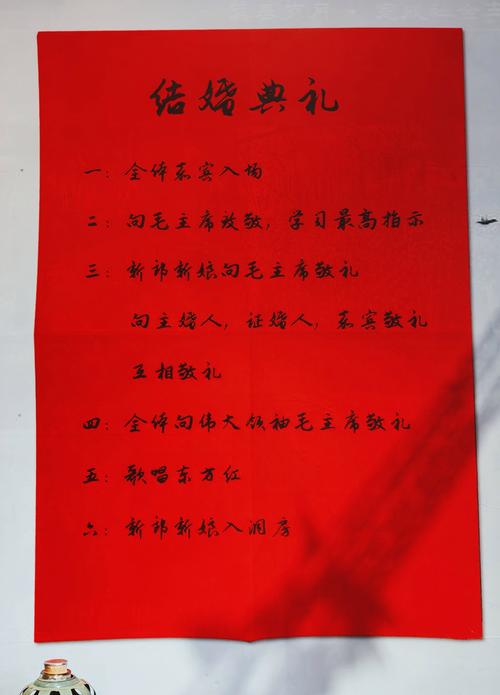 结婚典礼
一：全体来宾入场
二：向毛主席致敬，学习最高指示
三：新郎新娘向毛主席敬礼
向主婚人，证婚人，来宾敬礼
互相敬礼
四：全体向伟大领袖毛主席敬礼
五：歌唱东方红
六：新郎新娘入洞房